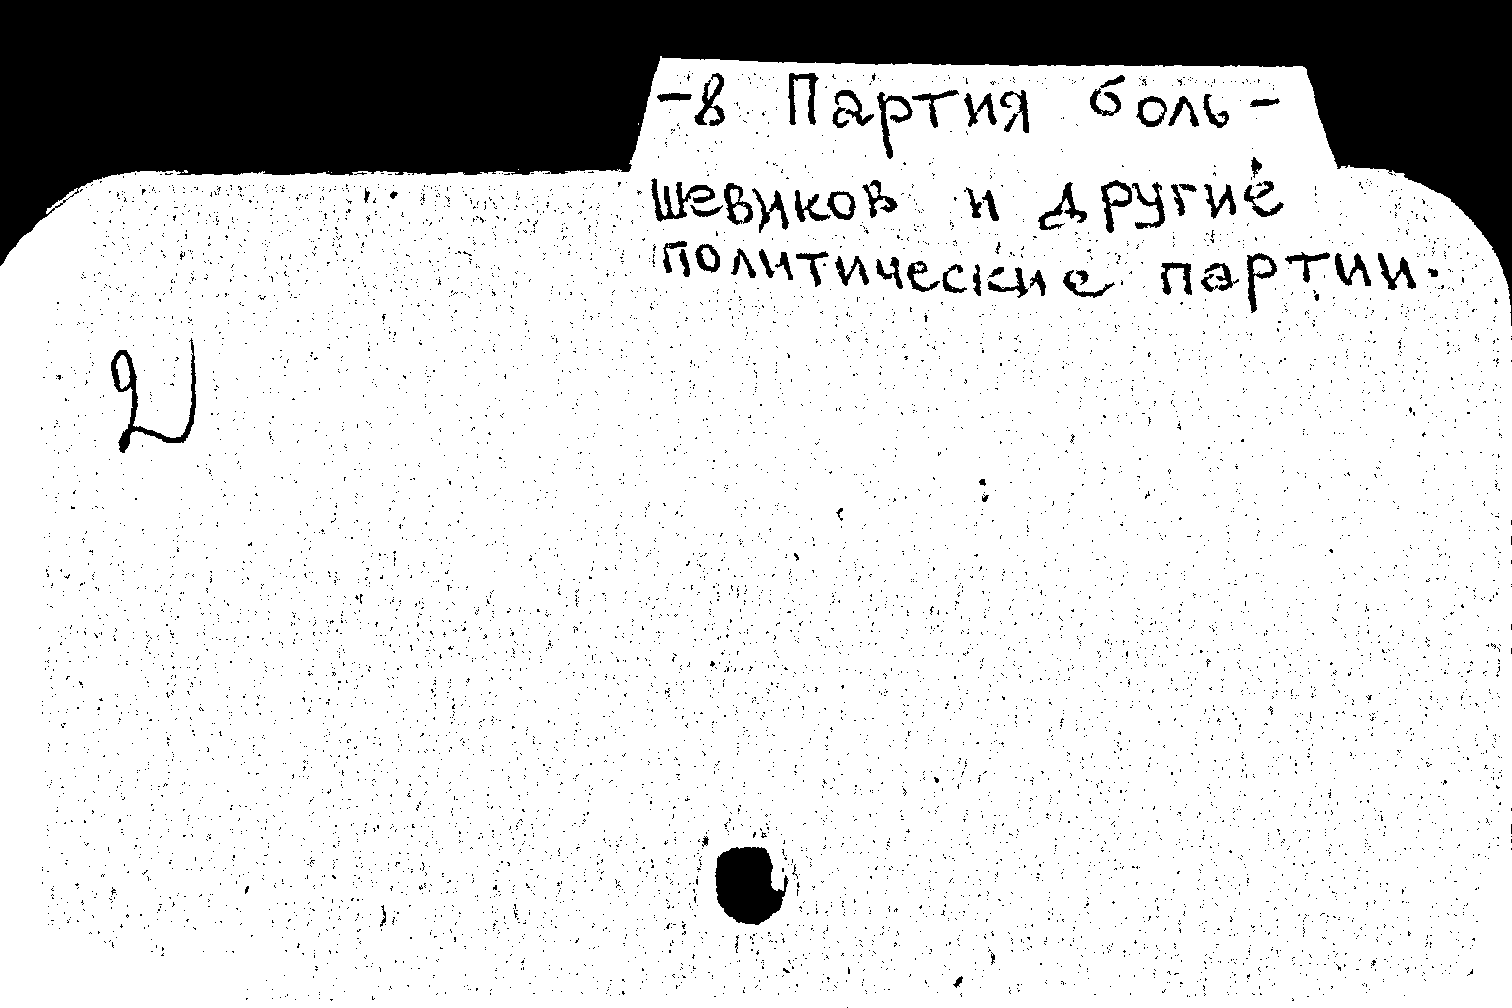 -8 Партия боль-
шевиков и другие
политические партии.